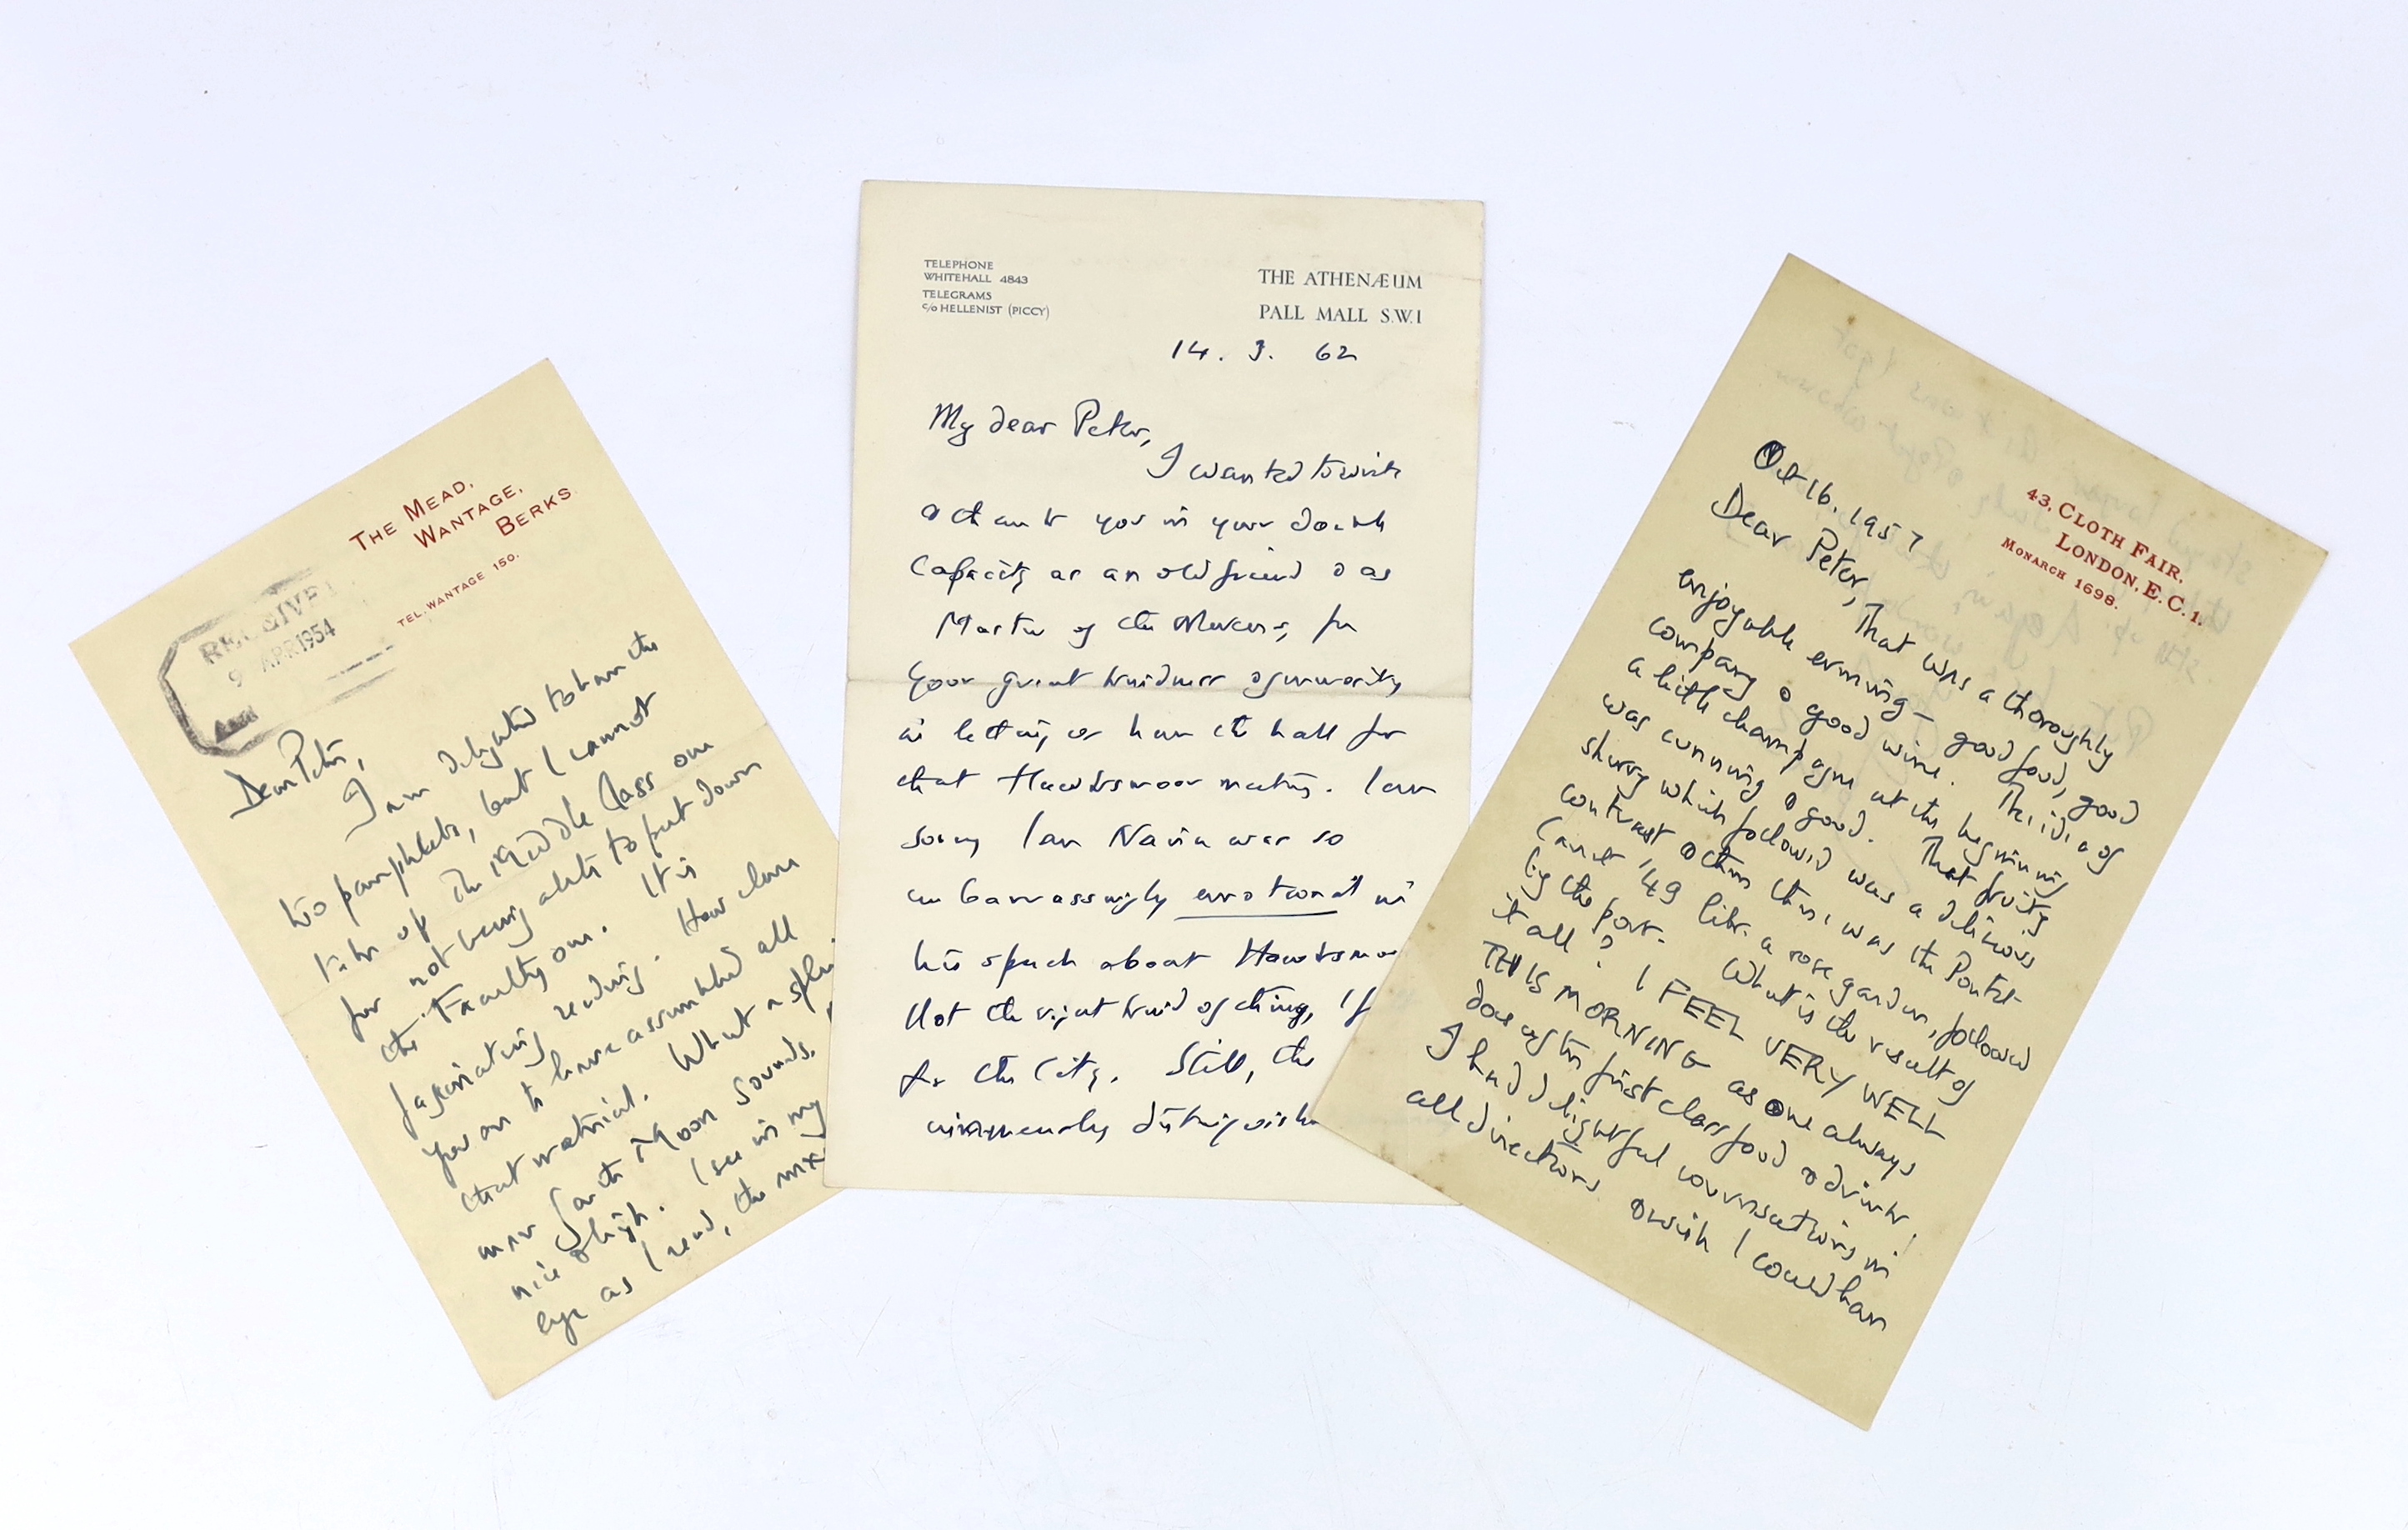 THE MEAD,
WANTAGE,
BERKS.
TEL. WANTAGE 150.
RECEIVED
9 APR 1954
Dear Peter,
I am delighted to have the
two pamphlets, but I cannot
take up the Middle Class one
for not being able to put down
the Faculty one. It is
fascinating reading. How clever
you are to have assembled all
that material. What a
man Garth Moon sounds.
nice & high. I see in my
eye as I read, the
TELEPHONE
WHITEHALL 4843
TELEGRAMS
c/o HELLENIST (PICCY)
THE ATHENÆUM
PALL MALL S.W.1
14. 3. 62
My dear Peter,
I wanted to write
& thank you in your double
capacity as an old friend & as
Master of the Mercers, for
your great kindness & generosity
in letting us have the hall for
that Hawksmoor meeting. I am
sorry Ian Nairn was so
embarrassingly emotional in
his speech about Hawksmo
Not the right kind of thing, if
for the City. Still, the
immensely distinguish
43, CLOTH FAIR,
LONDON, E.C.1.
MONARCH 1698.
Oct 16. 1957
Dear Peter, That was a thoroughly
enjoyable evening – good food, good
company & good wine. The idea of
a little champagne at the beginning
was cunning & good. That fruity
sherry which followed was a delicious
contrast & then there was the Pontet
Canet '49 like a rose garden, followed
by the port. What is the result of
it all? I FEEL VERY WELL
THIS MORNING as one always
does after first class food & drink.
I had delightful conversations in
all directions & wish I could have